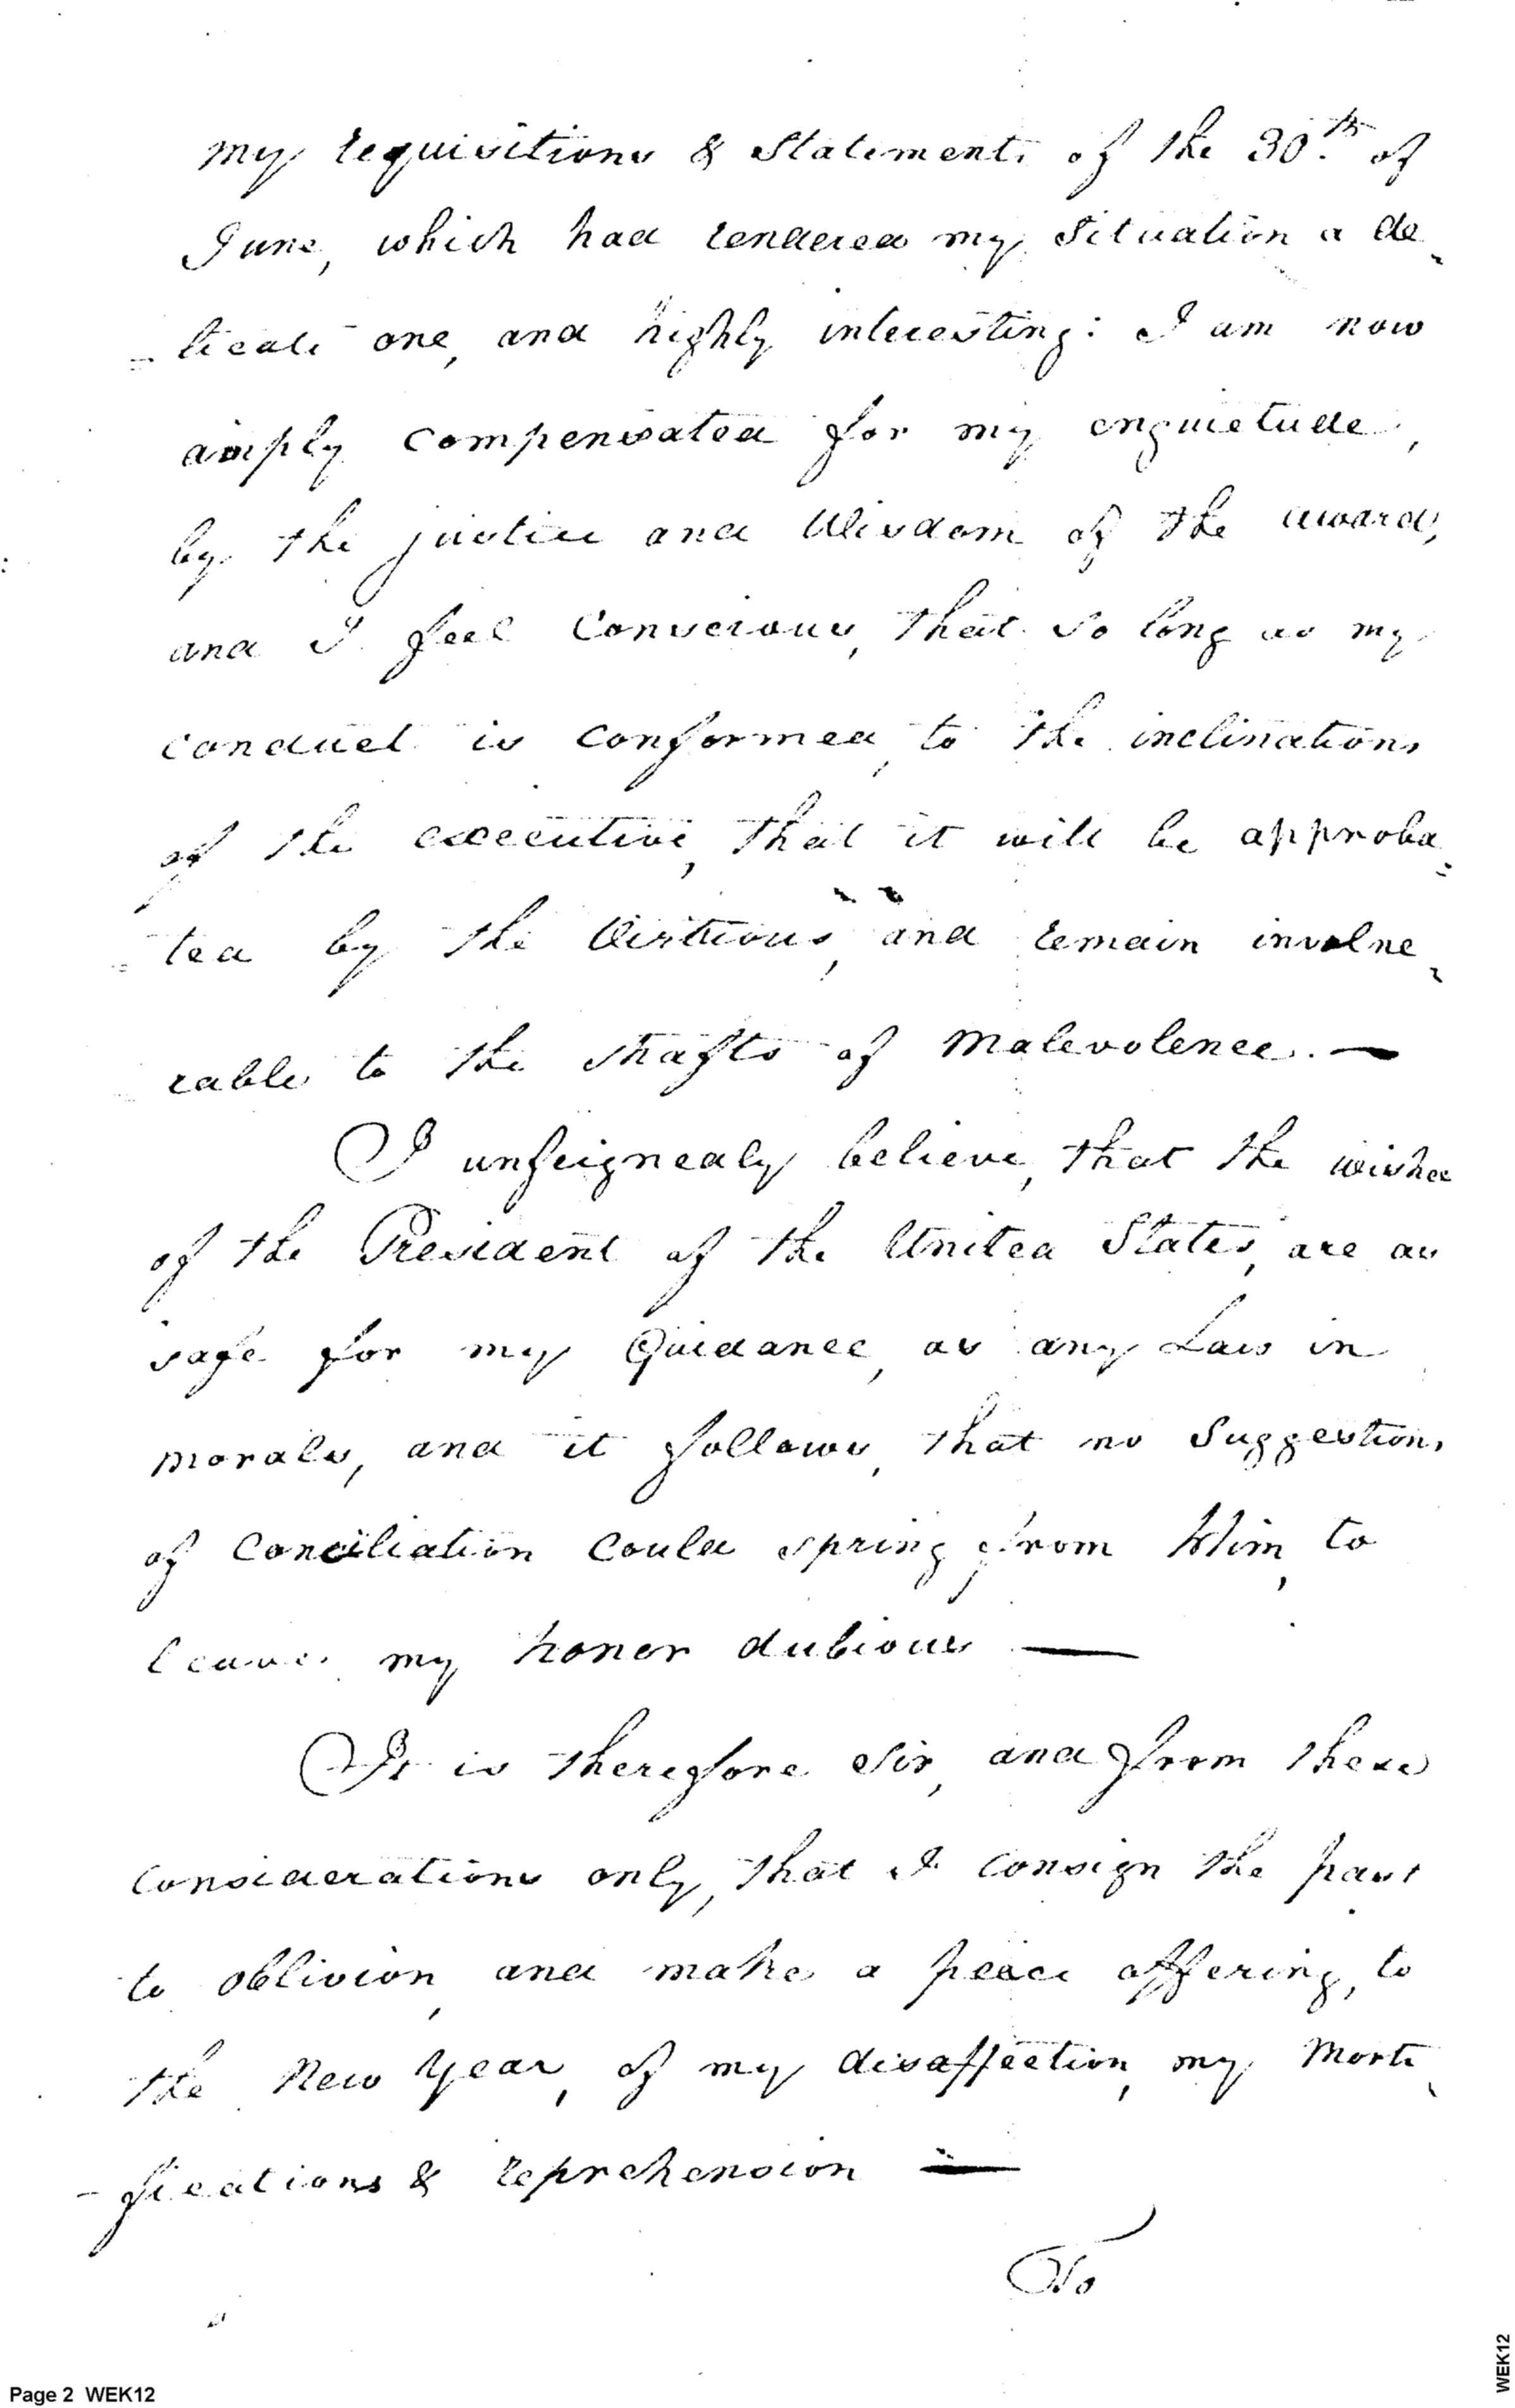 my requisitions & Statements of the 30th of
June, which had rendered my Situation a de
-licate one, and highly interesting: I am now
amply compensated for my enquietude,
by the justice and Wisdom of the award,
and I feel Conscious, that so long as my
conduct is conformed, to the inclinations
of the executive, that it will be approba
=ted by the Virtious, and remain invulne
rable to the shafts of Malevolence. —
I unfeignedly believe, that the wishes
of the President of the United States, are as
safe for my Guidance, as any Law in
morals, and it follows, that no Suggestions
of Conciliation Could spring from Him, to
leave my honor dubious —
It is therefore Sir, and from these
Considerations only, that I consign the past
to oblivion, and make a peace offering, to
the New Year, of my disaffection, my Morti
-fications & reprehension —
To
Page 2 WEK12
WEK12